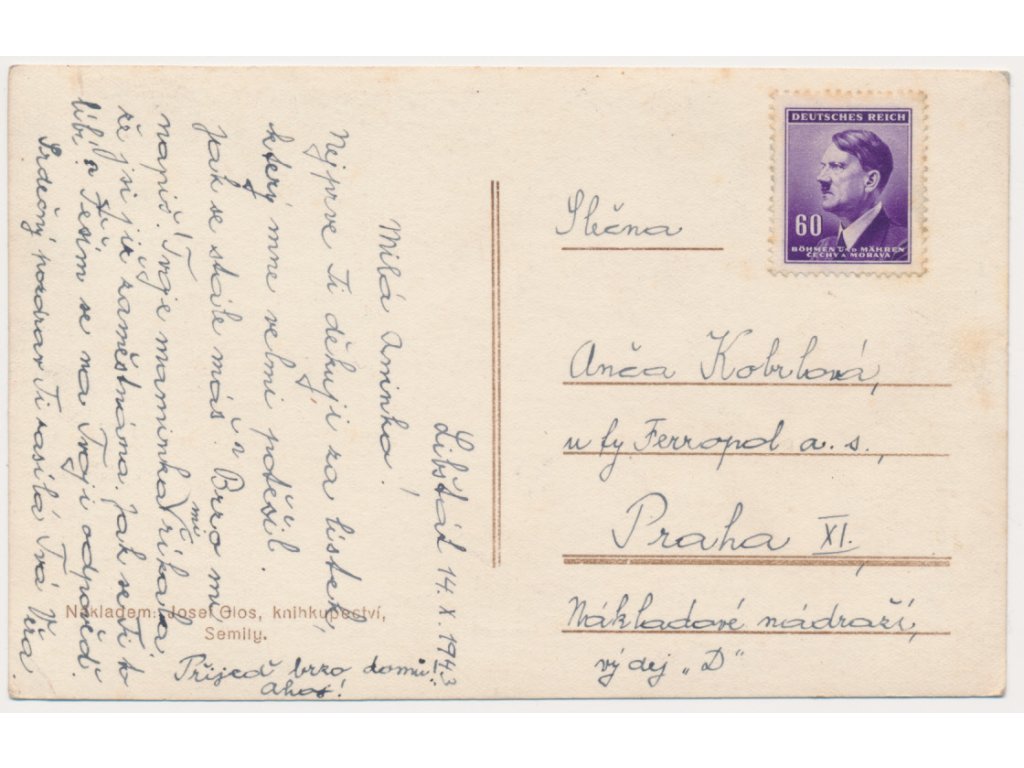 Libštát 14. X. 1943
Milá Aninko!
Nejprve Ti děkuji za lístek,
který mne velmi potěšil.
Jak se stále máš. Brzo mi
napiš! Tvoje maminka mi říkala
že jsi již zaměstnána. Jak se Ti to
líbí? Těším se na Tvoji odpověď.
Srdečný pozdrav Ti zasílá Tvá Věra.
Přijeď brzo domů!
Ahoj!
Nákladem: Josef Glos, knihkupectví,
Semily.
DEUTSCHES REICH
60
BÖHMEN UND MÄHREN
ČECHY A MORAVA
Slečna
Anča Kobrlová,
u fy Ferropol a. s.,
Praha XI,
Nákladové nádraží,
výdej „D"